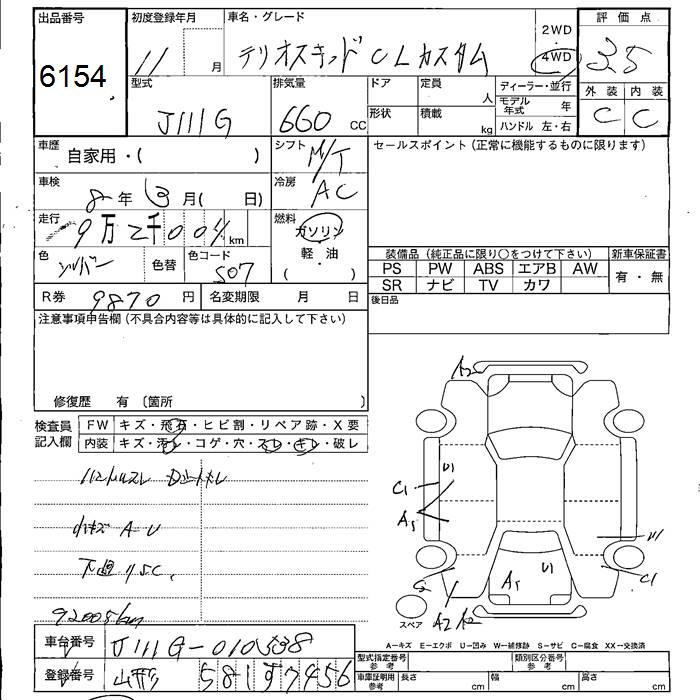 出品番号 初度登録年月 車名・グレード 2WD 評価点
6154 11 月 テリオスキッド CLカスタム 4WD 3.5
型式 排気量 ドア 定員 人 ディーラー・並行 外装 内装
J111G 660 CC 形状 積載 kg モデル年式 年 C C
ハンドル 左・右
車歴 自家用・( ) シフト M/T セールスポイント (正常に機能するものに限ります)
車検 8年 3月( 日) 冷房 AC
走行 9万2千00 km 燃料 ガソリン
軽・油
( )
色 シルバー 色替 色コード S07
装備品 (純正品に限り○をつけて下さい) 新車保証書
PS PW ABS エアB AW 有・無
SR ナビ TV カワ
R券 9870 円 名変期限 月 日 後日品
注意事項申告欄 (不具合内容等は具体的に記入して下さい)
修復歴 有 〔箇所 〕
検査員記入欄 FW キズ・飛石・ヒビ割・リペア跡・X要
内装 キズ・汚レ・コゲ・穴・スレ・キレ・破レ
ハンドルスレ
小キズ A-U
下廻りSC
92005km
A2
C1
A1
A1
C1
S
A2
スペア
A-キズ E-エクボ U-凹み W-補修跡 S-サビ C-腐食 XX-交換済
車台番号 J111G-010538
登録番号 山形 581 7456
型式指定番号 参考 類別区分番号 参考
車庫証明用 参考 長さ cm 幅 cm 高さ cm